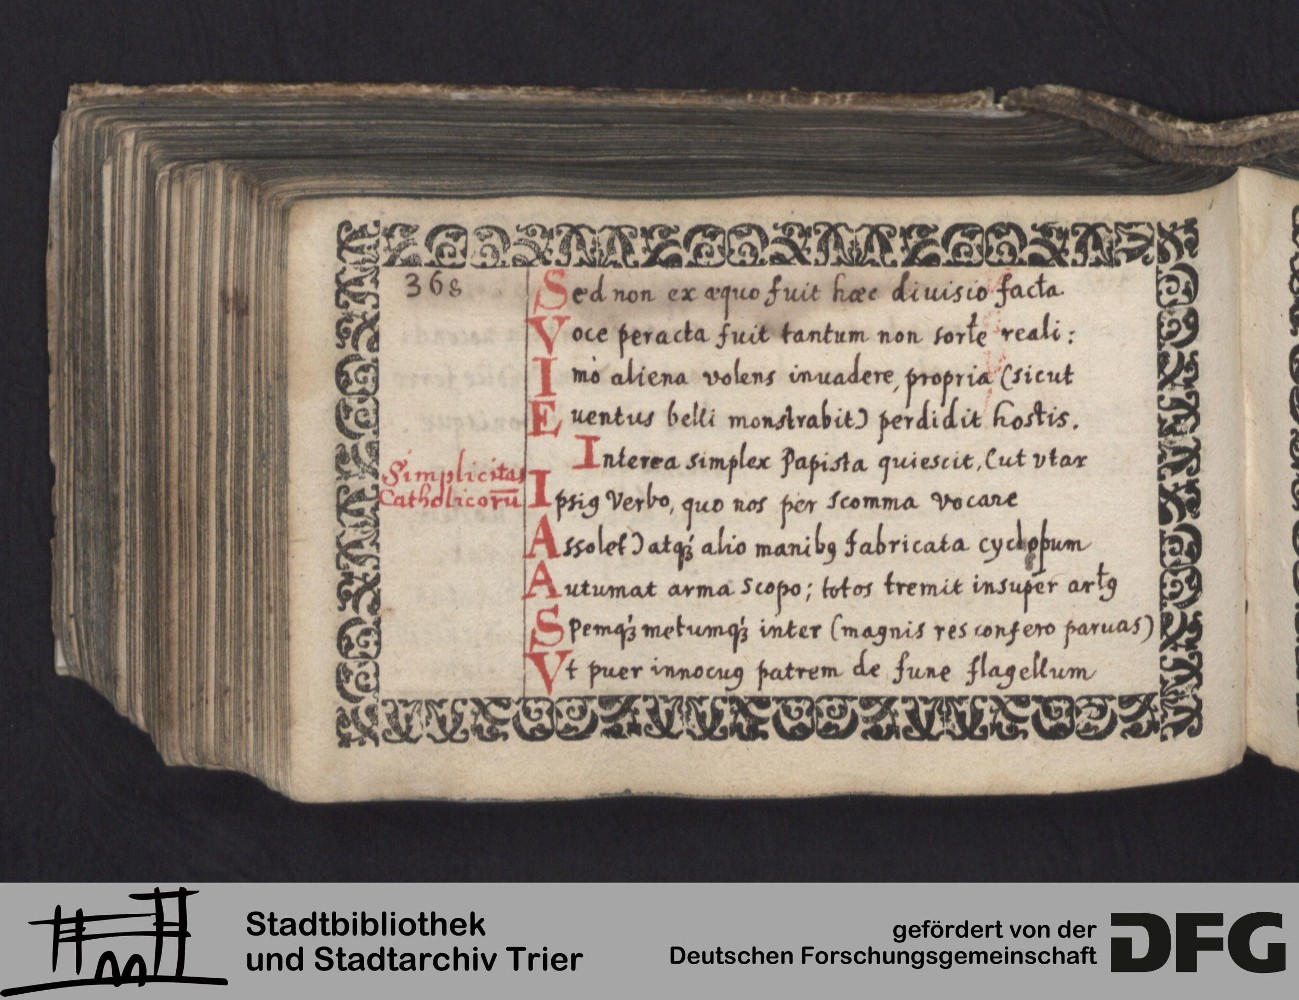 368
Sed non ex æquo fuit hæc diuisio facta
Voce peracta fuit tantum non sorte reali:
Imò aliena volens inuadere, propria (sicut
Euentus belli monstrabit) perdidit hostis.
Interea simplex Papista quiescit, (ut vtar
Simplicitas
Catholicorū
Ipsiꝰ verbo, quo nos per scomma vocare
Assolet) atqꝫ alio manibꝰ fabricata cyclopum
Autumat arma scopo; totos tremit insuper artꝰ
Spemqꝫ metumqꝫ inter (magnis res confero paruas)
Vt puer innocuꝰ patrem de fune flagellum
Stadtbibliothek
und Stadtarchiv Trier
gefördert von der
Deutschen Forschungsgemeinschaft
DFG